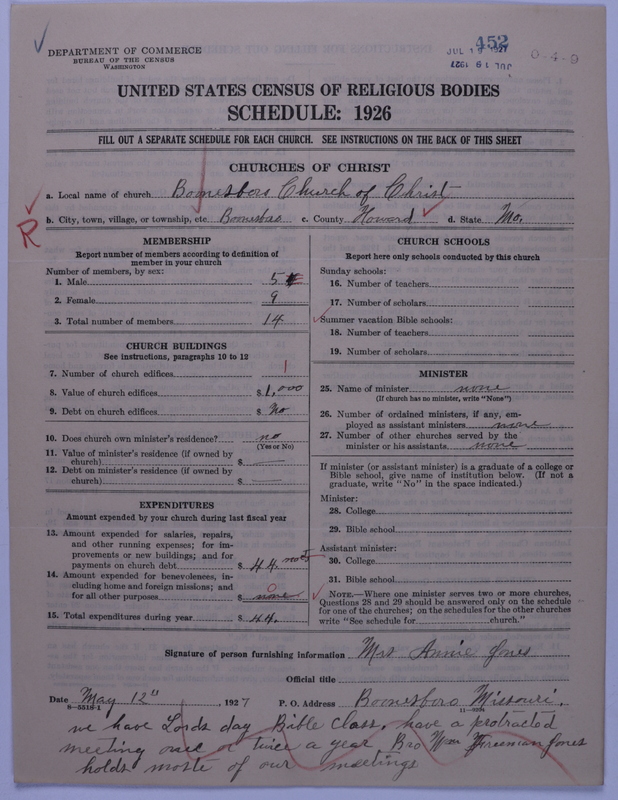 452
DEPARTMENT OF COMMERCE
BUREAU OF THE CENSUS
WASHINGTON
JUL 19 1927
JUL 19 1927
0-4-9
UNITED STATES CENSUS OF RELIGIOUS BODIES
SCHEDULE: 1926
FILL OUT A SEPARATE SCHEDULE FOR EACH CHURCH. SEE INSTRUCTIONS ON THE BACK OF THIS SHEET
CHURCHES OF CHRIST
a. Local name of church Boonesboro Church of Christ
b. City, town, village, or township, etc Boonesboro c. County Howard d. State Mo.
R
MEMBERSHIP
Report number of members according to definition of
member in your church
Number of members, by sex:
1. Male 5
2. Female 9
3. Total number of members 14
CHURCH BUILDINGS
See instructions, paragraphs 10 to 12
7. Number of church edifices 1
8. Value of church edifices $1,000
9. Debt on church edifices $ No
10. Does church own minister's residence? no
(Yes or No)
11. Value of minister's residence (if owned by
church) $ —
12. Debt on minister's residence (if owned by
church) $ —
EXPENDITURES
Amount expended by your church during last fiscal year
13. Amount expended for salaries, repairs,
and other running expenses; for im-
provements or new buildings; and for
payments on church debt $ 44.
14. Amount expended for benevolences, in-
cluding home and foreign missions; and
for all other purposes $ none 0
15. Total expenditures during year $ 44.
CHURCH SCHOOLS
Report here only schools conducted by this church
Sunday schools:
16. Number of teachers
17. Number of scholars
Summer vacation Bible schools:
18. Number of teachers
19. Number of scholars
MINISTER
25. Name of minister none
(If church has no minister, write "None")
26. Number of ordained ministers, if any, em-
ployed as assistant ministers none
27. Number of other churches served by the
minister or his assistants none
If minister (or assistant minister) is a graduate of a college or
Bible school, give name of institution below. (If not a
graduate, write "No" in the space indicated.)
Minister:
28. College
29. Bible school
Assistant minister:
30. College
31. Bible school
NOTE.—Where one minister serves two or more churches,
Questions 28 and 29 should be answered only on the schedule
for one of the churches; on the schedules for the other churches
write "See schedule for church."
Signature of person furnishing information Mrs Annie Jones
Official title
Date May 12", 1927 P. O. Address Boonesboro Missouri.
8-5518-1
we have Lords day Bible Class. have a protracted
meeting once or twice a year Bro Wm Freeman Jones
holds moste of our meetings